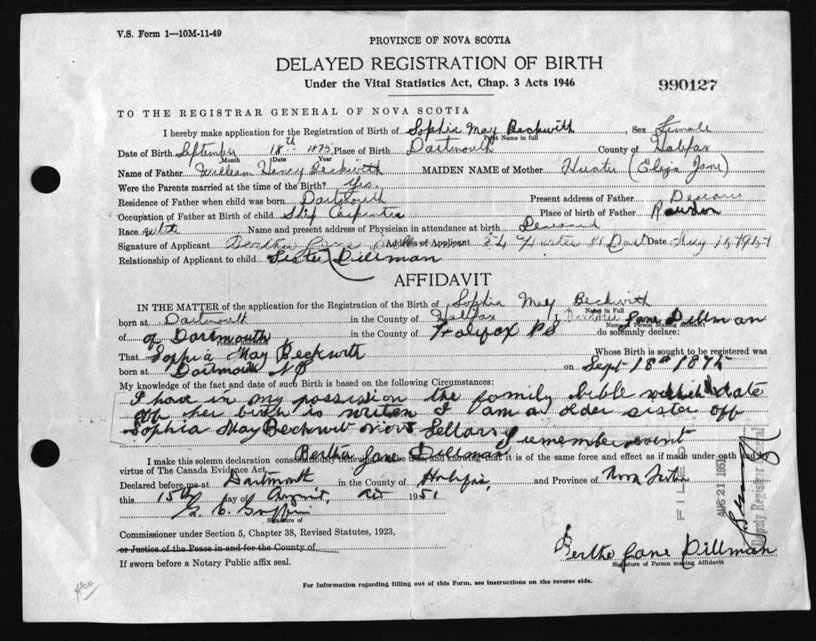 V.S. Form 1—10M-11-49
PROVINCE OF NOVA SCOTIA
DELAYED REGISTRATION OF BIRTH
Under the Vital Statistics Act, Chap. 3 Acts 1946
990127
TO THE REGISTRAR GENERAL OF NOVA SCOTIA
I hereby make application for the Registration of Birth of Sophia May Beckwith, Sex Female
Print Name in full
Date of Birth September 18th 1875, Place of Birth Dartmouth County of Halifax
Month Date Year
Name of Father William Henry Beckwith MAIDEN NAME of Mother Hunter (Eliza Jane)
Were the Parents married at the time of the Birth? Yes.
Residence of Father when child was born Dartmouth Present address of Father
Occupation of Father at Birth of child Ship Carpenter Place of birth of Father Rawdon
Race white Name and present address of Physician in attendance at birth Deceased
Signature of Applicant Bertha Jane Address of Applicant Date 1951
Relationship of Applicant to child Sister Dillman
AFFIDAVIT
IN THE MATTER of the application for the Registration of Birth of Sophia May Beckwith
Name in Full
born at Dartmouth in the County of Halifax I, Jane Dillman
Name of Person Making Affidavit
of of Dartmouth in the County of Halifax NS do solemnly declare:
That Sophia May Beckwith Whose Birth is sought to be registered was
born at Dartmouth NS on Sept 18th 1875
My knowledge of the fact and date of such Birth is based on the following Circumstances:
I have in my possession the family bible which date
off her birth is writen I am an older sister off
Sophia May Beckwit now Sellars I remember event
Bertha Jane Dillman
I make this solemn declaration conscientiously believing it to be true, and knowing that it is of the same force and effect as if made under oath and by
virtue of The Canada Evidence Act.
Declared before me at Dartmouth in the County of Halifax, and Province of Nova Scotia
this 15th day of August, AD 1951
Signature of
Commissioner under Section 5, Chapter 38, Revised Statutes, 1923,
or Justice of the Peace in and for the County of
If sworn before a Notary Public affix seal.
FILED
AUG 21 1951
Deputy Registrar General
Bertha Jane Dillman
Signature of Person making Affidavit
For Information regarding filling out of this Form, see instructions on the reverse side.